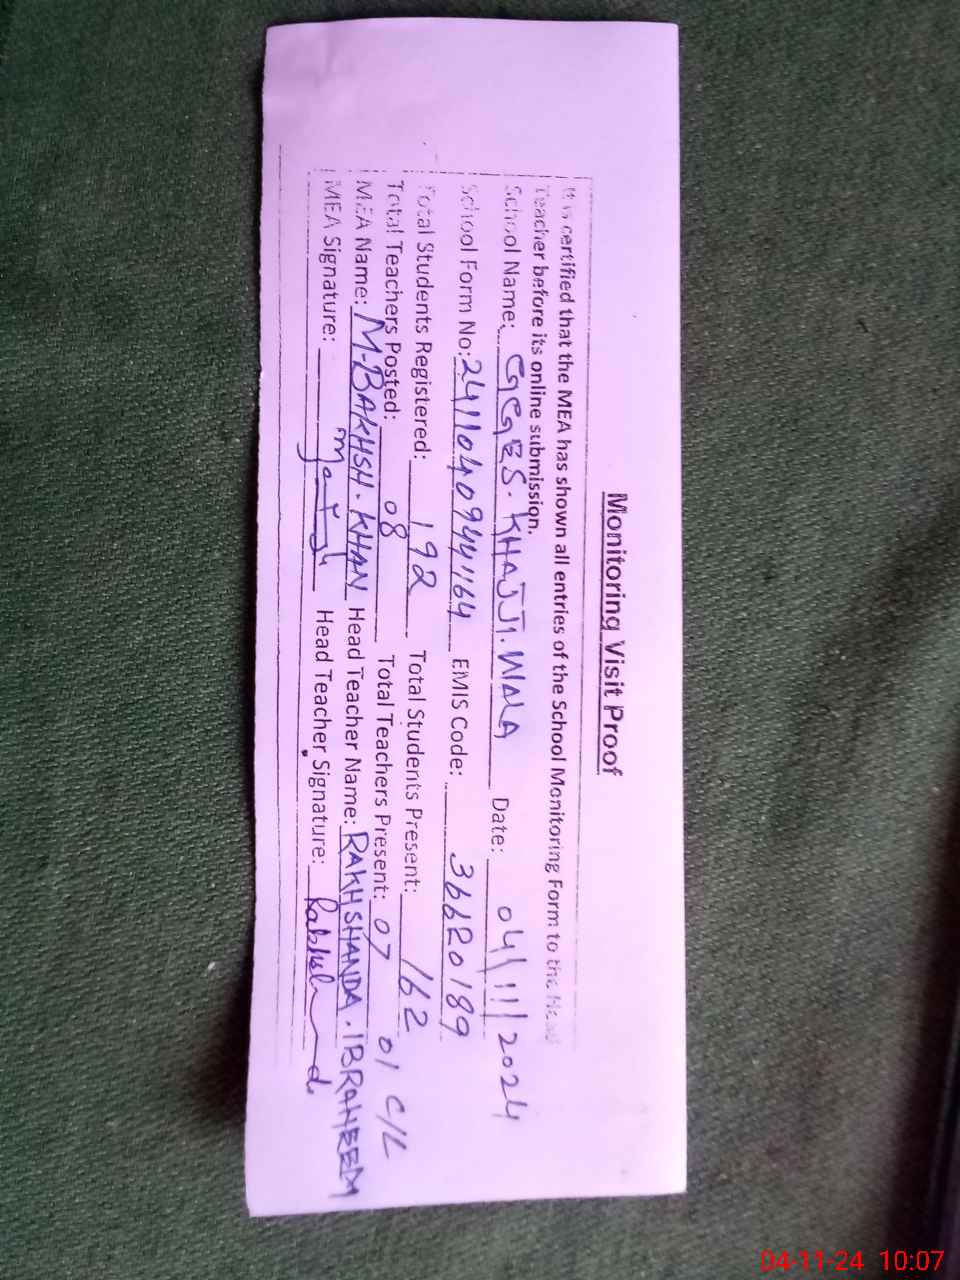 Monitoring Visit Proof
It is certified that the MEA has shown all entries of the School Monitoring Form to the Head
Teacher before its online submission.
School Name: GGES. KHAJJI. WALA Date: 04/11/2024
School Form No: 2411040944164 EMIS Code: 36620189
Total Students Registered: 192 Total Students Present: 162
Total Teachers Posted: 08 Total Teachers Present: 07 01 C/L
MEA Name: M. BAKHSH. KHAN Head Teacher Name: RAKHSHANDA. IBRAHEEM
MEA Signature: Head Teacher Signature:
04-11-24 10:07